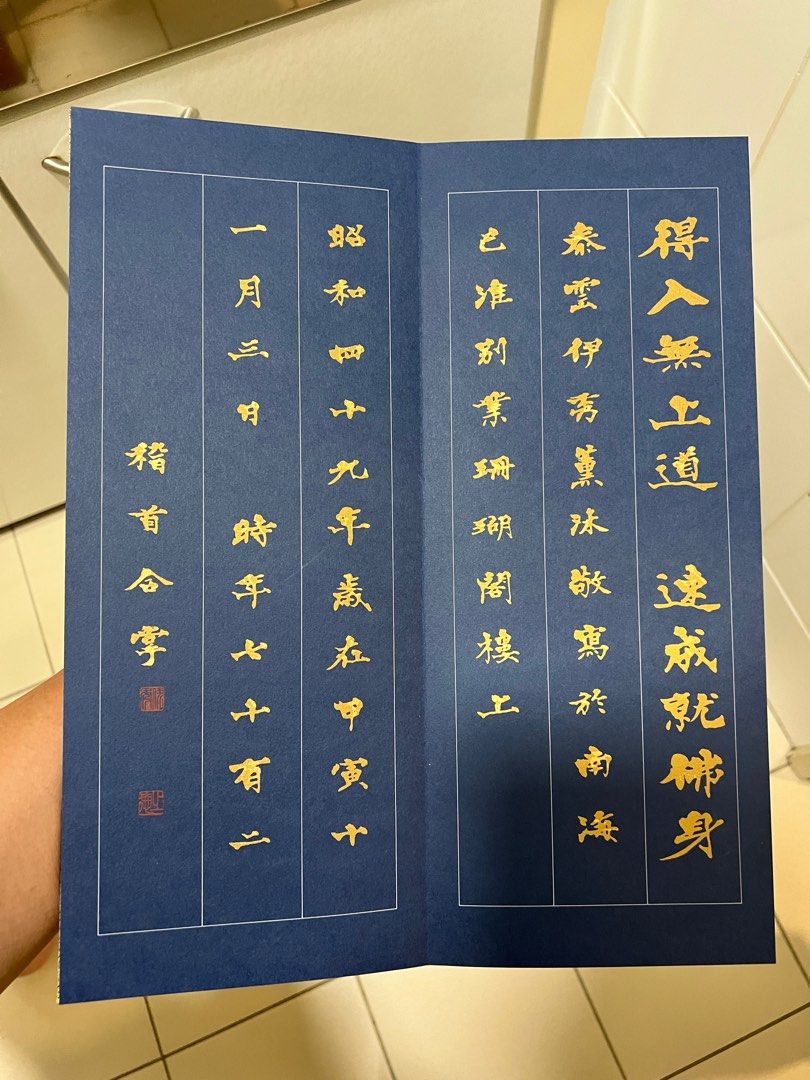 得入無上道 速成就佛身
泰雲伊秀薰沐敬寫於南海
已淮別業珊瑚閣樓上
昭和四十九年歲在甲寅十
一月三日 時年七十有二
稽首合掌